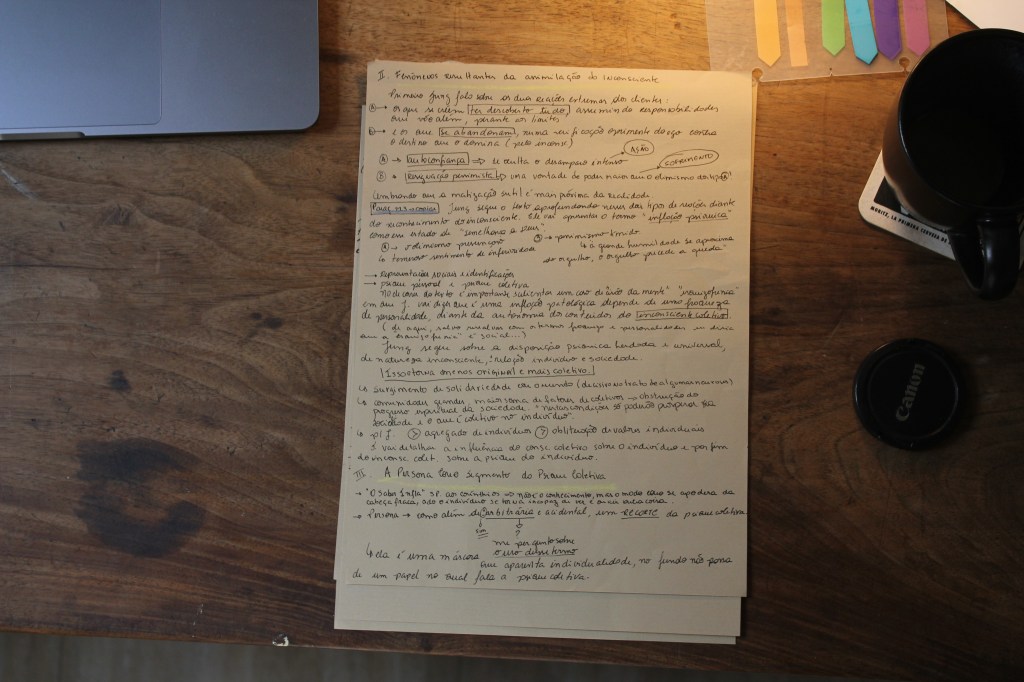 II. Fenômenos resultantes da assimilação do Inconsciente
Primeiro Jung fala sobre as duas reações extremas dos clientes:
A → os que se creem ter descoberto tudo, assumindo responsabilidades
que vão além, perante os limites
B → e os que se abandonam, numa do ego contra
o destino que o domina (pelo inconsc)
AÇÃO
A → autoconfiança ⇒ se oculta o desamparo intenso
SOFRIMENTO
B → Resignação pessimista uma vontade de poder maior que o otimismo do tipo A
Lembrando que a matização sutil é mais próxima da realidade
Jung segue o texto aprofundando nesses dois tipos de reações diante
do reconhecimento do inconsciente. Ele vai apresentar o termo "inflação psíquica"
como em estado de "semelhança a Deus"
A → otimismo presunção
B → pessimismo
↳ temeroso sentimento de inferioridade
↳ a grande humildade se aproxima
do orgulho, o orgulho precede a queda"
→ Representações sociais e identificações
→ psique pessoal e psique coletiva
No decorrer do texto é importante salientar um caso da mente" "esquizofrenia"
em que J. vai dizer que é uma inflação patológica depende de uma fraqueza
de personalidade, diante da autonomia dos conteúdos do inconsciente coletivo.
(de aqui, com os termos fraqueza e personalidade,
que a esquizofrenia" é social...)
Jung segue sobre a disposição psíquica herdada e universal,
de natureza inconsciente, relação indivíduo e sociedade.
Isso torna o menos original e mais coletivo.
↳ Surgimento de solidariedade com o mundo
↳ comunidades grandes, maior soma de fatores coletivos → obstrução do
progresso espiritual da sociedade. "nestas condições só poderão prosperar na
sociedade e o que é coletivo no indivíduo".
↳ p/ J. > agregado de indivíduos > obliteração de valores individuais
J vai detalhar a influência do consc coletivo sobre o indivíduo e por fim
do inconsc colet. sobre a psique do indivíduo.
III. A Persona como segmento da Psique Coletiva
→ "O Saber Infla" SP. aos coríntios ⇒ não é o conhecimento, mas o modo como se apodera da
cabeça fraca, que o indivíduo se torna incapaz de ver e ouvir outra coisa.
→ Persona → como além de arbitrária e acidental, um RECORTE da psique coletiva
?
me pergunto sobre
o uso desse termo
↳ ela é uma máscara
que aparenta individualidade, no fundo não passa
de um papel no qual fala a psique coletiva.
Canon